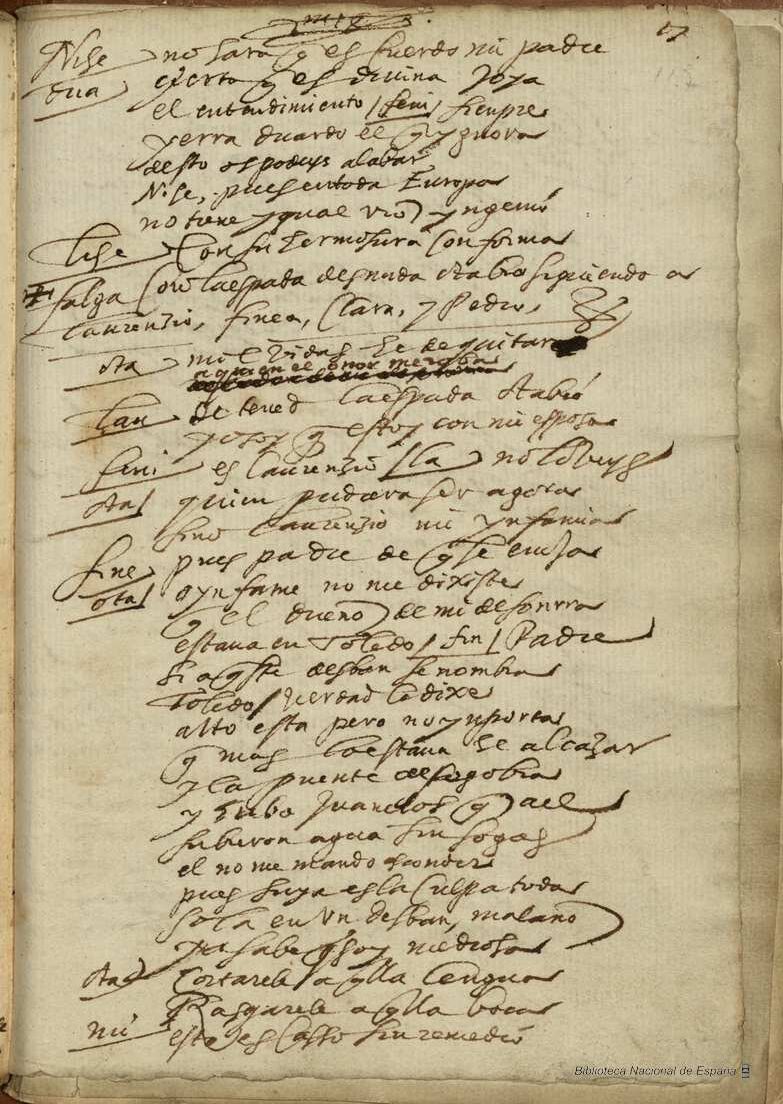 17
Nise no hara q es cuerdo mi padre
dua cierto q es diuina joya
el entendimiento / feni / sienpre
yerra duardo el q ygnora
desto os podeys alabar
Nise, pues en toda Europa
no tiene ygual vro yngenio
lise con su hermosura conforma
salga con la espada desnuda otabio siguiendo a
laurenzio, finea, clara, y Pedro,
ota mil vidas he de quitar
a quien el onor me roba
lau detened la espada otabio
yo soy q estoy con mi esposa
feni es laurenzio / la no lo veys
ota quien pudiera ser agora
sino laurenzio mi ynfamia
fine pues padre de q se enoja
ota o ynfame no me dixiste
q el dueño de mi desonrra
estaua en Toledo / fin / Padre
si aqste desban se nombra
Toledo / verdad le dixe
alto esta pero no ynporta
q mas lo estaua el alcazar
y la puente de segobia
y hubo Juanelos q a el
subieron agua sin sogas
el no me mando asconder
pues suya es la culpa toda
sola en vn desban, mal año
ya sabe q soy medrosa
ota cortarele aqlla lengua
Rasgarele aqlla boca
mi esto es casso sin remedio
Biblioteca Nacional de España